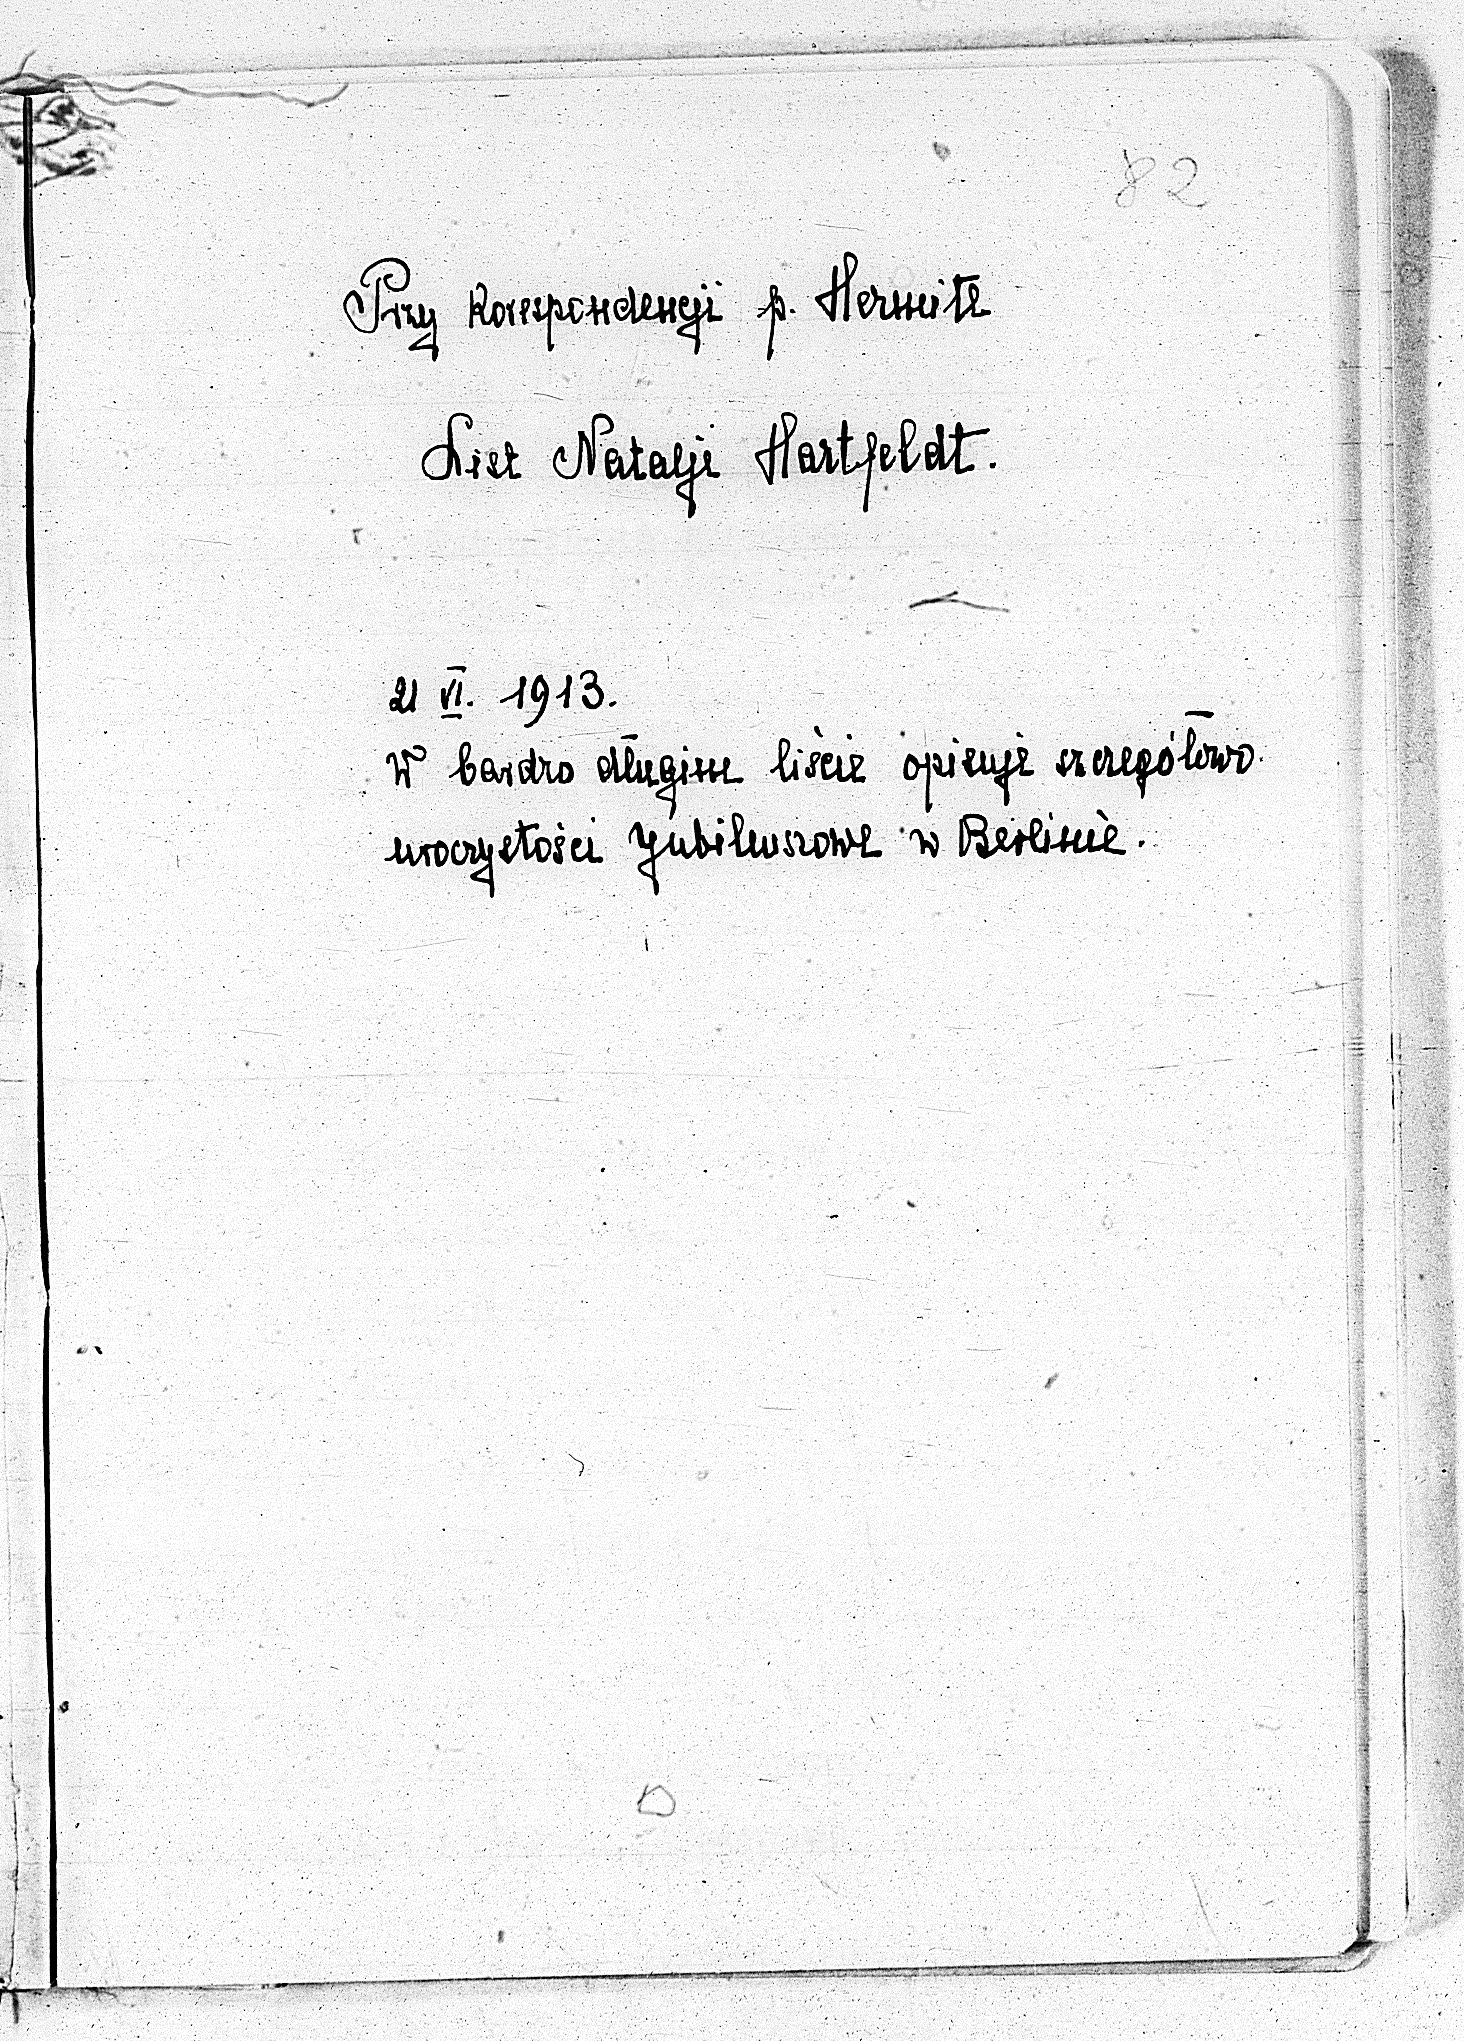 82
Przy korespondencji p. Hermite
List Natalji Hartfeldt.
21 VI. 1913.
W bardzo długim liście opisuje szczegółowo
uroczystości jubileuszowe w Berlinie.